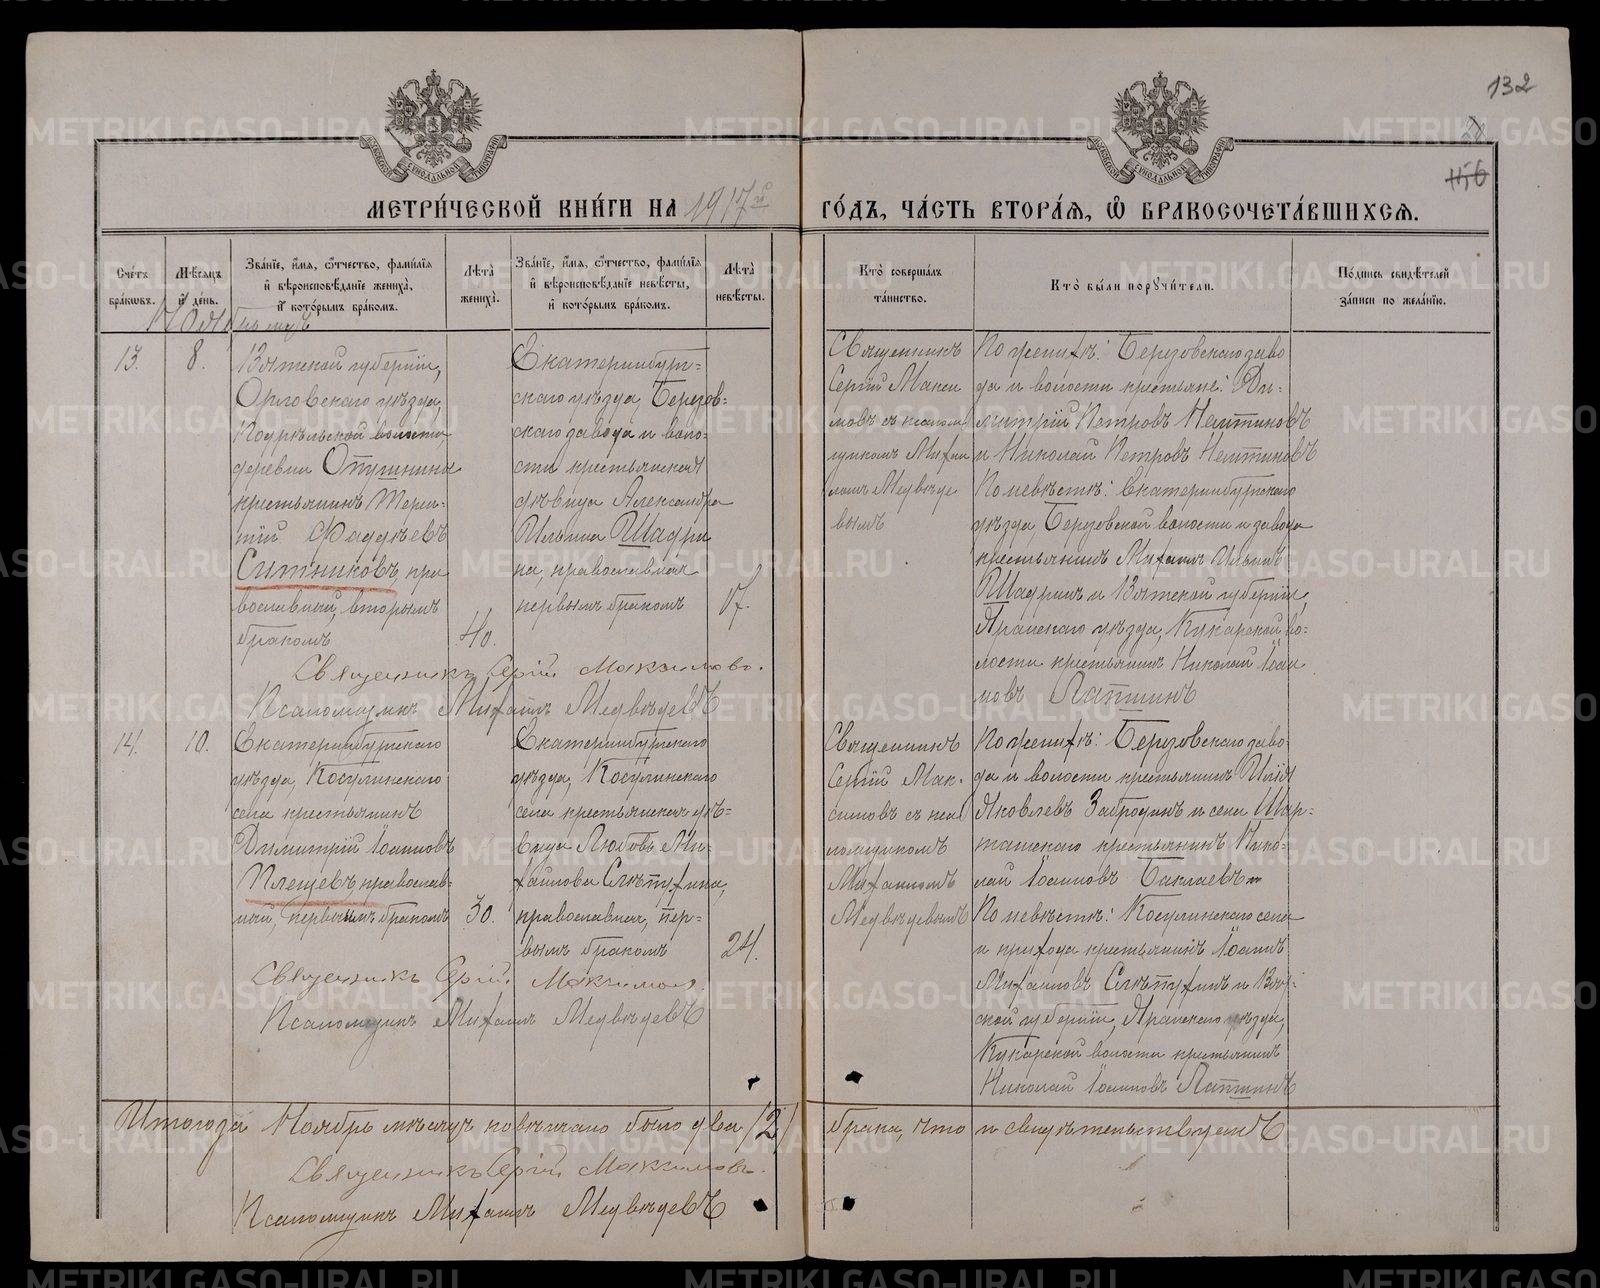 132
28
116
МЕТРИ́ЧЕСКОЙ КНИ́ГИ НА 1917й ГО́ДЪ, ЧА́СТЬ ВТОРА́Я, Ѡ БРАКОСОЧЕТА́ВШИХСЯ.
Сче́тъ бра́ковъ.
Мѣ́сяцъ и҆ де́нь.
Зва́нїе, и҆́мя, ѻ҆́тчество, фами́лїя и҆ вѣроисповѣ́данїе жениха̀, и҆ кото́рымъ бра́комъ.
Лѣ́та жениха̀.
Зва́нїе, и҆́мя, ѻ҆́тчество, фами́лїя и҆ вѣроисповѣ́данїе невѣ́сты, и҆ кото́рымъ бра́комъ.
Лѣ́та невѣ́сты.
Кто̀ соверша́лъ та́инство.
Кто̀ бы́ли поручи́тели.
По́дпись свидѣ́телей за́писи по жела́нїю.
Ноябрь мцъ
13.
8.
Вятской губернiи,
Орловскаго уѣзда,
волости
деревни Опушнины
крестьянинъ Терен-
тiй Фаддѣевъ
Ситниковъ, пра
вославный, вторымъ
бракомъ
40.
Екатеринбург=
скаго уѣзда, Березов=
скаго завода и воло=
сти крестьянская
дѣвица Александра
Ильина Шадри
на, православная
первымъ бракомъ
17.
Священникъ
Сергiй Макси
мовъ съ псалом
щикомъ Михаи
ломъ Медвѣде
вымъ
По женихѣ: Березовскаго заво
да и волости крестьяне: Ди-
митрiй Петровъ Нештиновъ
и Николай Петровъ Нештиновъ
По невѣстѣ: Екатеринбургскаго
уѣзда Березовской волости и завода
крестьянинъ Михаилъ Ильинъ
Шадринъ и Вятской губернiи,
Яранскаго уѣзда, Кукарской во=
лости крестьянинъ Николай Iоан
новъ Лаптинъ
Священникъ Сергiй Максимовъ.
Псаломщикъ Михаилъ Медвѣдевъ
14.
10.
Екатеринбургскаго
уѣзда, Косулинскаго
села крестьянинъ
Димитрiй Iоанновъ
Плещевъ, православ=
ный, первымъ бракомъ
30.
Екатеринбургскаго
уѣзда, Косулинскаго
села крестьянская дѣ=
вица Любовь Ми-
хаилова Слѣтухина,
православная, пер=
вымъ бракомъ
24.
Священникъ
Сергiй Мак-
симовъ съ пса
ломщикомъ
Михаиломъ
Медвѣдевымъ
По женихѣ: Березовскаго заво-
да и волости крестьянинъ Илiя
Яковлевъ Забродинъ и села Шар-
ташскаго крестьянинъ Нико-
лай Iоанновъ Баклаевъ
По невѣстѣ: Косулинскаго села
и прихода крестьянинъ Iоаннъ
Михаиловъ Слѣтухинъ и Вят-
ской губернiи, Яранскаго уѣзда,
Кукарской волости крестьянинъ
Николай Iоанновъ Лаптинъ
Священникъ Сергiй Максимовъ.
Псаломщикъ Михаилъ Медвѣдевъ
Итого за Ноябрь мѣсяцъ повѣнчано было два /2/ брака, что и свидѣтельствуемъ
Священникъ Сергiй Максимовъ.
Псаломщикъ Михаилъ Медвѣдевъ
METRIKI.GASO-URAL.RU